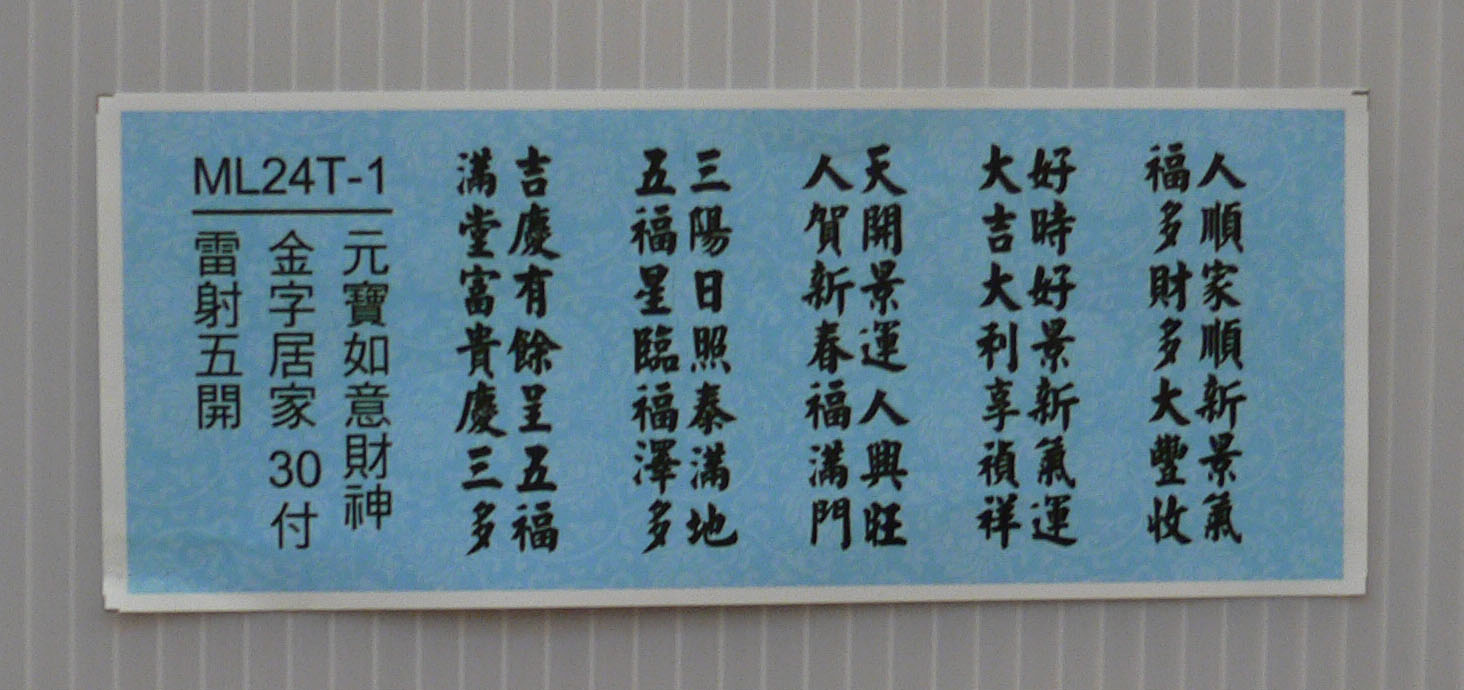 人順家順新景氣
福多財多大豐收
好時好景新氣運
大吉大利享禎祥
天開景運人興旺
人賀新春福滿門
三陽日照泰滿地
五福星臨福澤多
吉慶有餘呈五福
滿堂富貴慶三多
ML24T-1
元寶如意財神
金字居家 30付
雷射五開